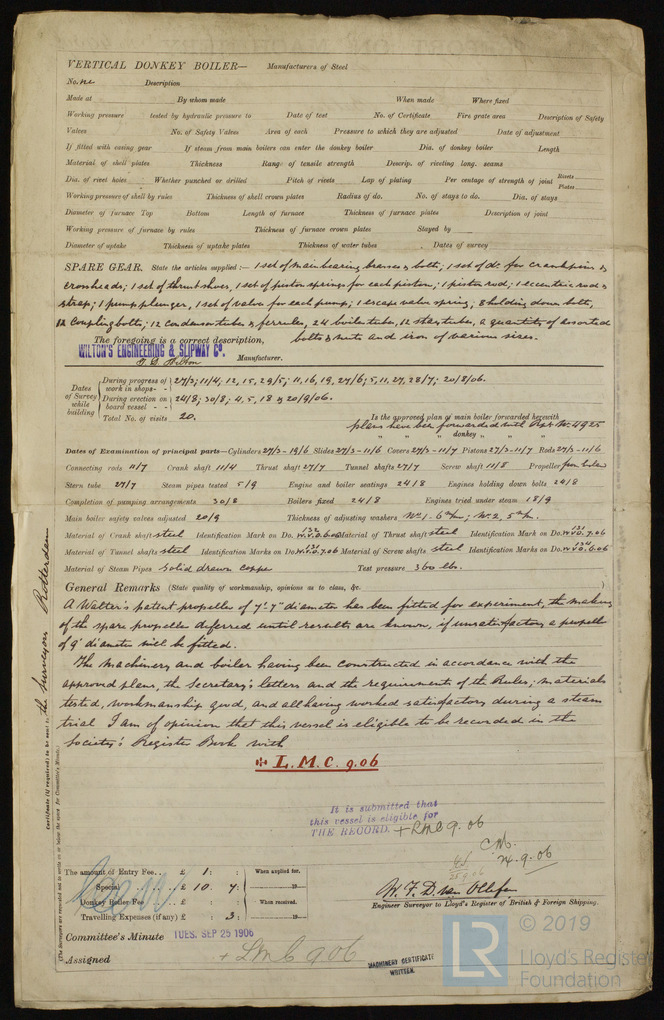 VERTICAL DONKEY BOILER— Manufacturers of Steel
No. Description
Made at By whom made When made Where fixed
Working pressure tested by hydraulic pressure to Date of test No. of Certificate Fire grate area Description of Safety
Valves No. of Safety Valves Area of each Pressure to which they are adjusted Date of adjustment
If fitted with easing gear If steam from main boilers can enter the donkey boiler Dia. of donkey boiler Length
Material of shell plates Thickness Range of tensile strength Descrip. of riveting long. seams
Dia. of rivet holes Whether punched or drilled Pitch of rivets Lap of plating Per centage of strength of joint Rivets Plates
Working pressure of shell by rules Thickness of shell crown plates Radius of do. No. of stays to do. Dia. of stays
Diameter of furnace Top Bottom Length of furnace Thickness of furnace plates Description of joint
Working pressure of furnace by rules Thickness of furnace crown plates Stayed by
Diameter of uptake Thickness of uptake plates Thickness of water tubes Dates of survey
SPARE GEAR. State the articles supplied:— 1 set of main bearing brasses & bolts; 1 set of do. for crankpins &
crossheads; 1 set of thrust shoes, 1 set of piston springs for each piston; 1 piston rod; 1 eccentric rod &
strap; 1 pump plunger, 1 set of valves for each pump; 1 escape valve spring; 8 holding down bolts,
12 coupling bolts; 12 condenser tubes & ferrules, 24 boiler tubes, 12 stay tubes, a quantity of assorted
bolts & nuts and iron of various sizes.
The foregoing is a correct description,
WILTON'S ENGINEERING & SLIPWAY Co.
Wilton Manufacturer.
Dates of Survey while building
During progress of work in shops - - 27/3; 11/4; 12, 15, 29/5; 11, 16, 19, 27/6; 5, 11, 27, 28/7; 20/8/06.
During erection on board vessel - - 24/8; 30/8; 4, 5, 18 & 20/9/06.
Total No. of visits 20.
Is the approved plan of main boiler forwarded herewith
plans have been forwarded with Rept No. 4925
" " " donkey " " "
Dates of Examination of principal parts—Cylinders 27/3-19/6 Slides 27/3-11/6 Covers 27/3-11/7 Pistons 27/3-11/7 Rods 27/3-11/6
Connecting rods 11/7 Crank shaft 11/4 Thrust shaft 27/7 Tunnel shafts 27/7 Screw shaft 11/8 Propeller
Stern tube 27/7 Steam pipes tested 5/9 Engine and boiler seatings 24/8 Engines holding down bolts 24/8
Completion of pumping arrangements 30/8 Boilers fixed 24/8 Engines tried under steam 18/9
Main boiler safety valves adjusted 20/9 Thickness of adjusting washers
Material of Crank shaft steel Identification Mark on Do. 132 Material of Thrust shaft steel Identification Mark on Do. 131 W.V.O. 7.06
Material of Tunnel shafts steel Identification Marks on Do. 131 W.V.O. 7.06 Material of Screw shafts steel Identification Marks on Do. W.V.O. 6.06
Material of Steam Pipes Solid drawn copper Test pressure 360 lbs.
General Remarks (State quality of workmanship, opinions as to class, &c.
A Walter's patent propeller of 7'.7" diameter has been fitted for experiment, the making
of the spare propeller deferred until results are known, if unsatisfactory a propeller
of 9' diameter will be fitted.
The machinery and boiler having been constructed in accordance with the
approved plans, the Secretary's letters and the requirements of the Rules; materials
tested, workmanship good, and all having worked satisfactory during a steam
trial I am of opinion that this vessel is eligible to be recorded in the
Society's Register Book with
L.M.C. 9.06
It is submitted that
this vessel is eligible for
THE RECORD. + LMC 9.06
24.9.06
The amount of Entry Fee.. £ 1 : : When applied for,
Special £ 10 . 7 :
Donkey Boiler Fee £ : : When received,
Travelling Expenses (if any) £ : 3 :
W. F. D. van Ollefen
Engineer Surveyor to Lloyd's Register of British & Foreign Shipping.
Committee's Minute TUES. SEP 25 1906
Assigned + LMC 9 06
MACHINERY CERTIFICATE
WRITTEN.
Certificate (if required) to be sent to the Surveyors Rotterdam
(The Surveyors are requested not to write on or below the space for Committee's Minute.)
© 2019
LR
Lloyd's Register
Foundation